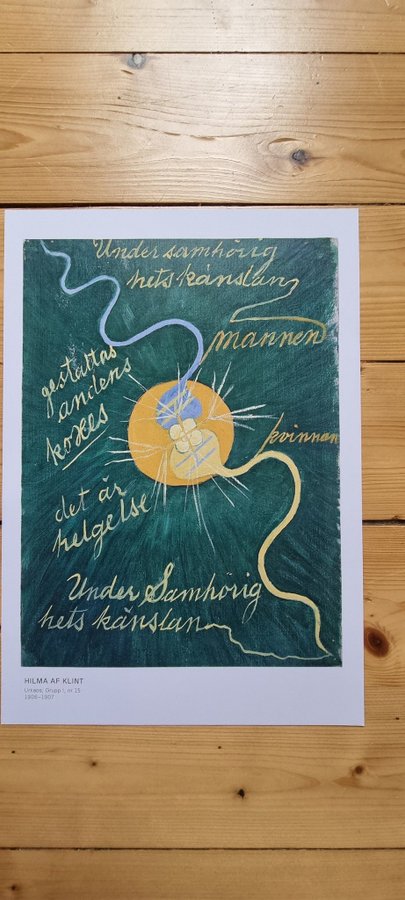 Under samhörig
hets känslan
mannen
gestaltas
andens
koxes
kvinnan
det är
helgelse
Under Samhörig
hets känslan
HILMA AF KLINT
Urkaos, Grupp I, nr 15
1906–1907